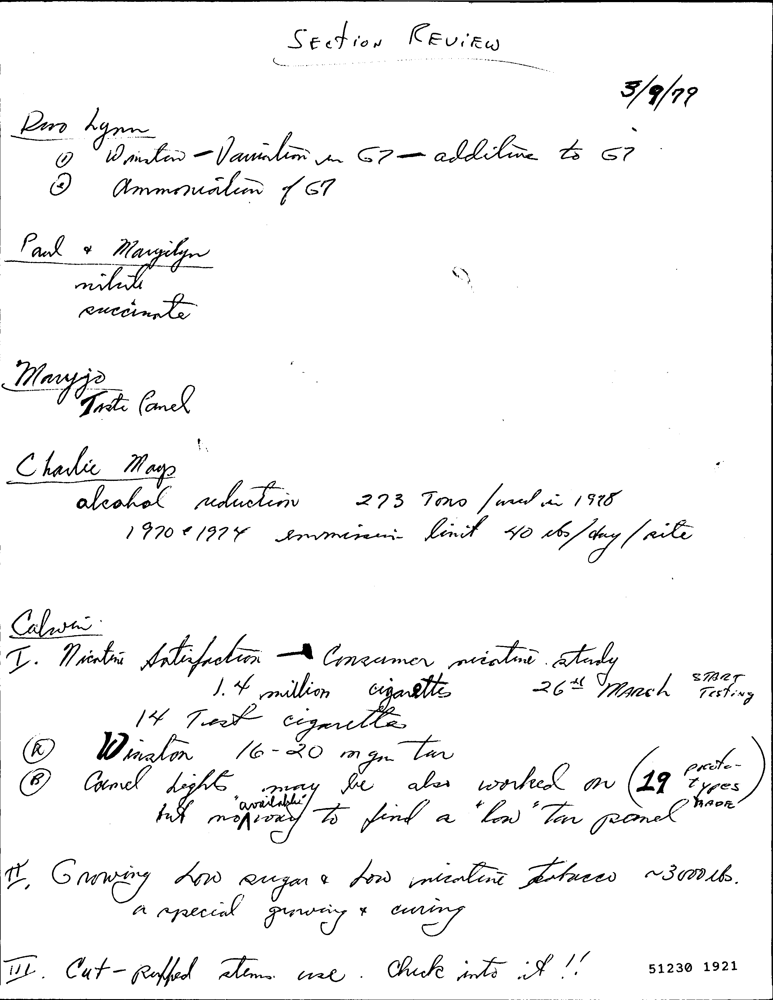 SEction REViEW
3/9/79
Lynn
① Winston - Variation in G7 - additive to G7
② Ammoniation of G7
Paul & Margilyn
nitrite
succinate
Maryjo
Taste Panel
Charlie Mays
alcohol reduction 273 Tons / used in 1978
1970 & 1974 emmission limit 40 lbs/day/site
Calvin
I. Nicotine Satisfaction → Consumer nicotine study
1.4 million cigarettes 26th MARCH START Testing
14 Test cigarettes
Ⓐ Winston 16-20 mgm Tar
Ⓑ Camel Lights may be also worked on (19 proto-types MADE)
but no "available" way to find a "low" Tar panel
II. Growing Low sugar & Low nicotine Tobacco ~3000 lbs.
a special growing & curing
III. Cut-Puffed stems use. Check into it!!
51230 1921